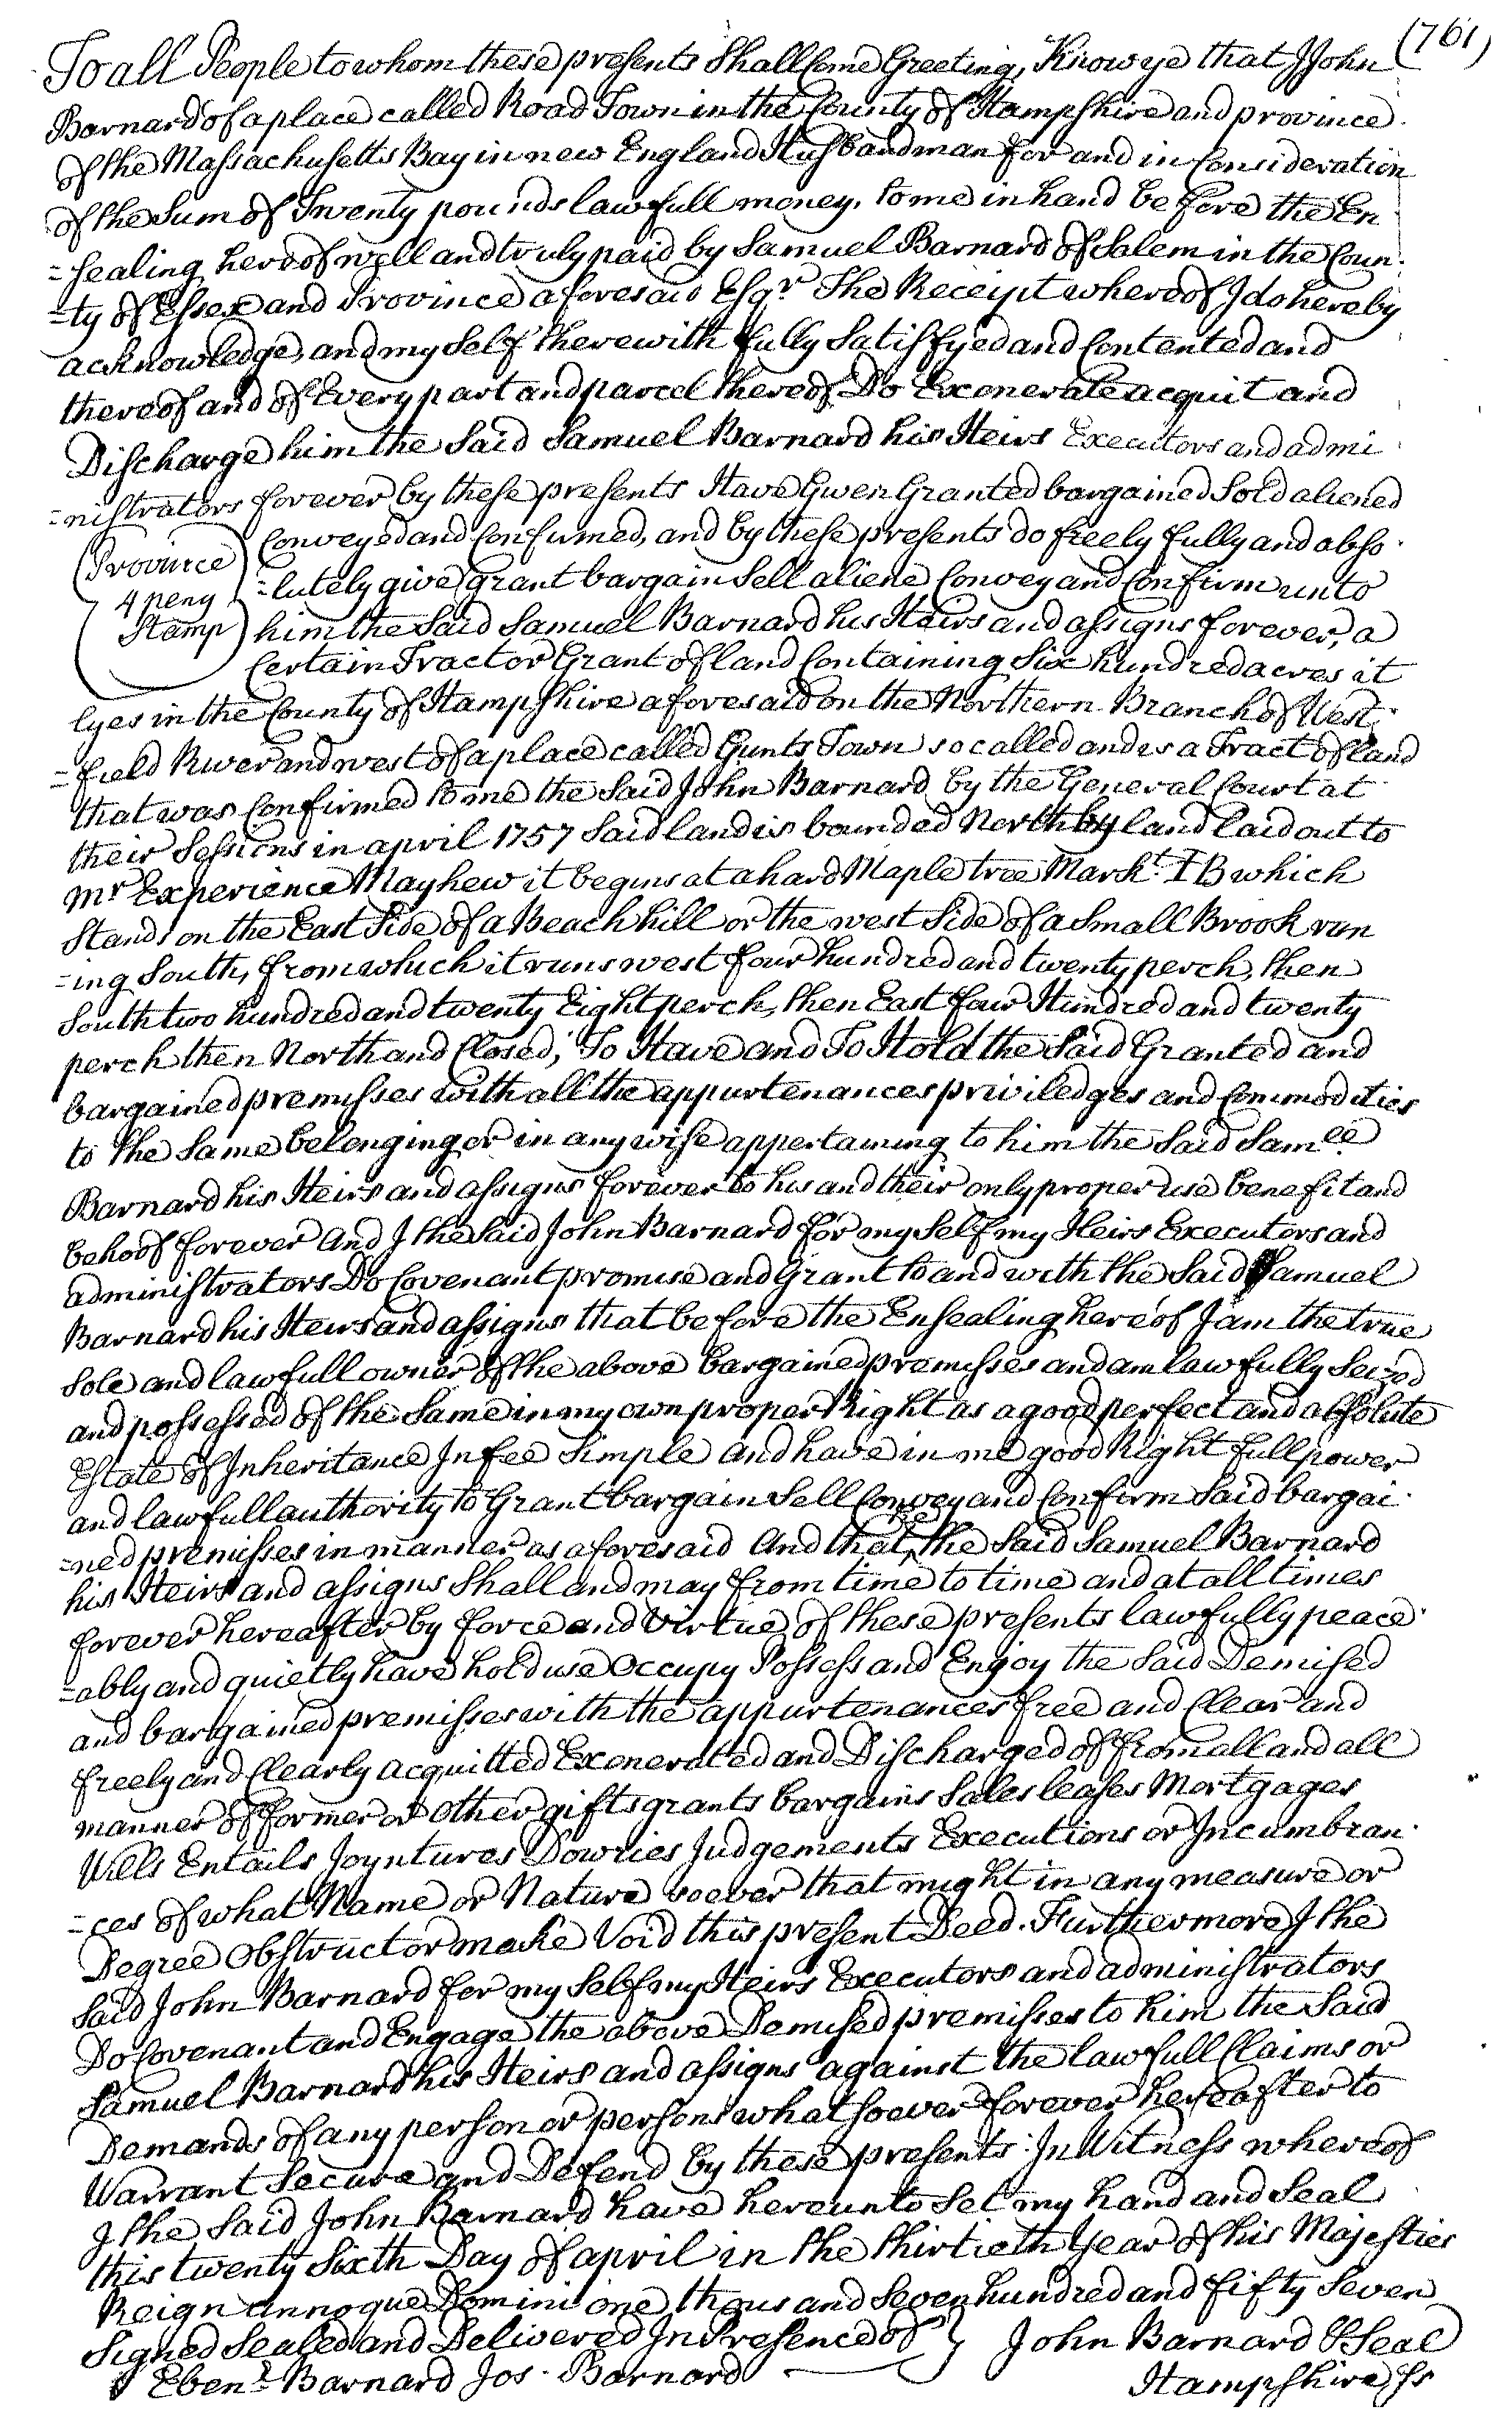 (761)
To all People to whom these presents Shall Come Greeting, Know ye that I John
Barnard of a place called Road Town in the County of Hampshire and province
of the Massachusetts Bay in new England Husbandman for and in Consideration
of the Sum of Twenty pounds lawfull money, to me in hand before the En
=sealing hereof well and truly paid by Samuel Barnard of Salem in the Coun
=ty of Essex and Province aforesaid Esqr The Receipt whereof I do hereby
acknowledge, and my Self therewith fully Satisfyed and Contented and
thereof and of Every part and parcel thereof Do Exonerate acquit and
Discharge him the Said Samuel Barnard his Heirs Executors and admi
=nistrators forever by these presents Have Given Granted bargained Sold aliened
Conveyed and Confirmed, and by these presents do freely fully and abso
(Province
4 peny
Stamp)
=lutely give grant bargain Sell aliene Convey and Confirm unto
him the Said Samuel Barnard his Heirs and assigns forever, a
Certain Tract or Grant of land Containing Six hundred acres it
lyes in the County of Hampshire aforesaid on the Northern Branch of West
=field River and west of a place called Gunts Town so called and is a Tract of land
that was Confirmed to me the Said John Barnard by the General Court at
their Sessions in april 1757 Said land is bounded North by land laid out to
Mr Experience Mayhew it begins at a hard Maple tree Markt IB which
Stands on the East Side of a Beach hill or the west Side of a Small Brook run
=ing South, from which it runs west four hundred and twenty perch, then
South two hundred and twenty Eight perch, then East four Hundred and twenty
perch then North and Closed; To Have and To Hold the Said Granted and
bargained premisses with all the appurtenances priviledges and Commodities
to the Same belonging or in any wise appertaining to him the Said Samll
Barnard his Heirs and assigns forever to his and their only proper use benefit and
behoof forever And I the Said John Barnard for my Self my Heirs Executors and
administrators Do Covenant promise and Grant to and with the Said Samuel
Barnard his Heirs and assigns that before the Ensealing hereof I am the true
Sole and lawfull owner of the above bargained premisses and am lawfully Seized
and possessed of the Same in my own proper Right as a good perfect and absolute
Estate of Inheritance In fee Simple And have in me good Right full power
and lawfull authority to Grant bargain Sell Convey and Confirm Said bargai
=ned premisses in manner as aforesaid And that he the Said Samuel Barnard
his Heirs and assigns Shall and may from time to time and at all times
forever hereafter by force and Virtue of these presents lawfully peace
=ably and quietly have hold use Occupy Possess and Enjoy the Said Demised
and bargained premisses with the appurtenances free and Clear and
freely and Clearly acquitted Exonerated and Discharged of from all and all
manner of former or other gifts grants bargains Sales leases Mortgages
Wills Entails Joyntures Dowries Judgements Executions or Incumbran
=ces of what Name or Nature soever that might in any measure or
Degree Obstruct or make Void this present Deed. Furthermore I the
Said John Barnard for my Self my Heirs Executors and administrators
Do Covenant and Engage the above Demised premisses to him the Said
Samuel Barnard his Heirs and assigns against the lawfull Claims or
Demands of any person or persons whatsoever forever hereafter to
Warrant Secure and Defend by these presents. In Witness whereof
I the Said John Barnard have hereunto Set my hand and Seal
this twenty Sixth Day of april in the thirtieth Year of his Majesties
Reign annoque Domini one thousand Seven hundred and fifty Seven
Signed Sealed and Delivered In Presence of } John Barnard & Seal
Ebenr Barnard Jos Barnard Hampshire Ss